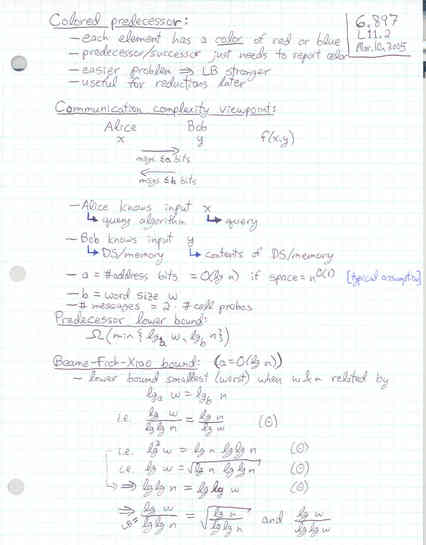 6.897
L11.2
Mar. 10, 2005
Colored predecessor:
- each element has a color of red or blue
- predecessor/successor just needs to report color
- easier problem ⇒ LB stronger
- useful for reductions later
Communication complexity viewpoint:
Alice Bob
x y f(x,y)
msgs ≤a bits
msgs ≤b bits
- Alice knows input x
↳ query algorithm ↳ query
- Bob knows input y
↳ DS/memory ↳ contents of DS/memory
- a = #address bits = O(lg n) if space = n^O(1) [typical assumption]
- b = word size w
- # messages = 2 · # cell probes
Predecessor lower bound:
Ω(min {lg_a w, lg_b n})
Beame-Fich-Xiao bound: (a=O(lg n))
- lower bound smallest (worst) when w & n related by
lg_a w = lg_b n
i.e. lg w / lg lg n = lg n / lg w (Θ)
i.e. lg² w = lg n lg lg n (Θ)
i.e. lg w = √(lg n lg lg n) (Θ)
⇒ lg lg n = lg lg w (Θ)
⇒ lg w / lg lg n = √(lg n / lg lg n) and lg w / lg lg w